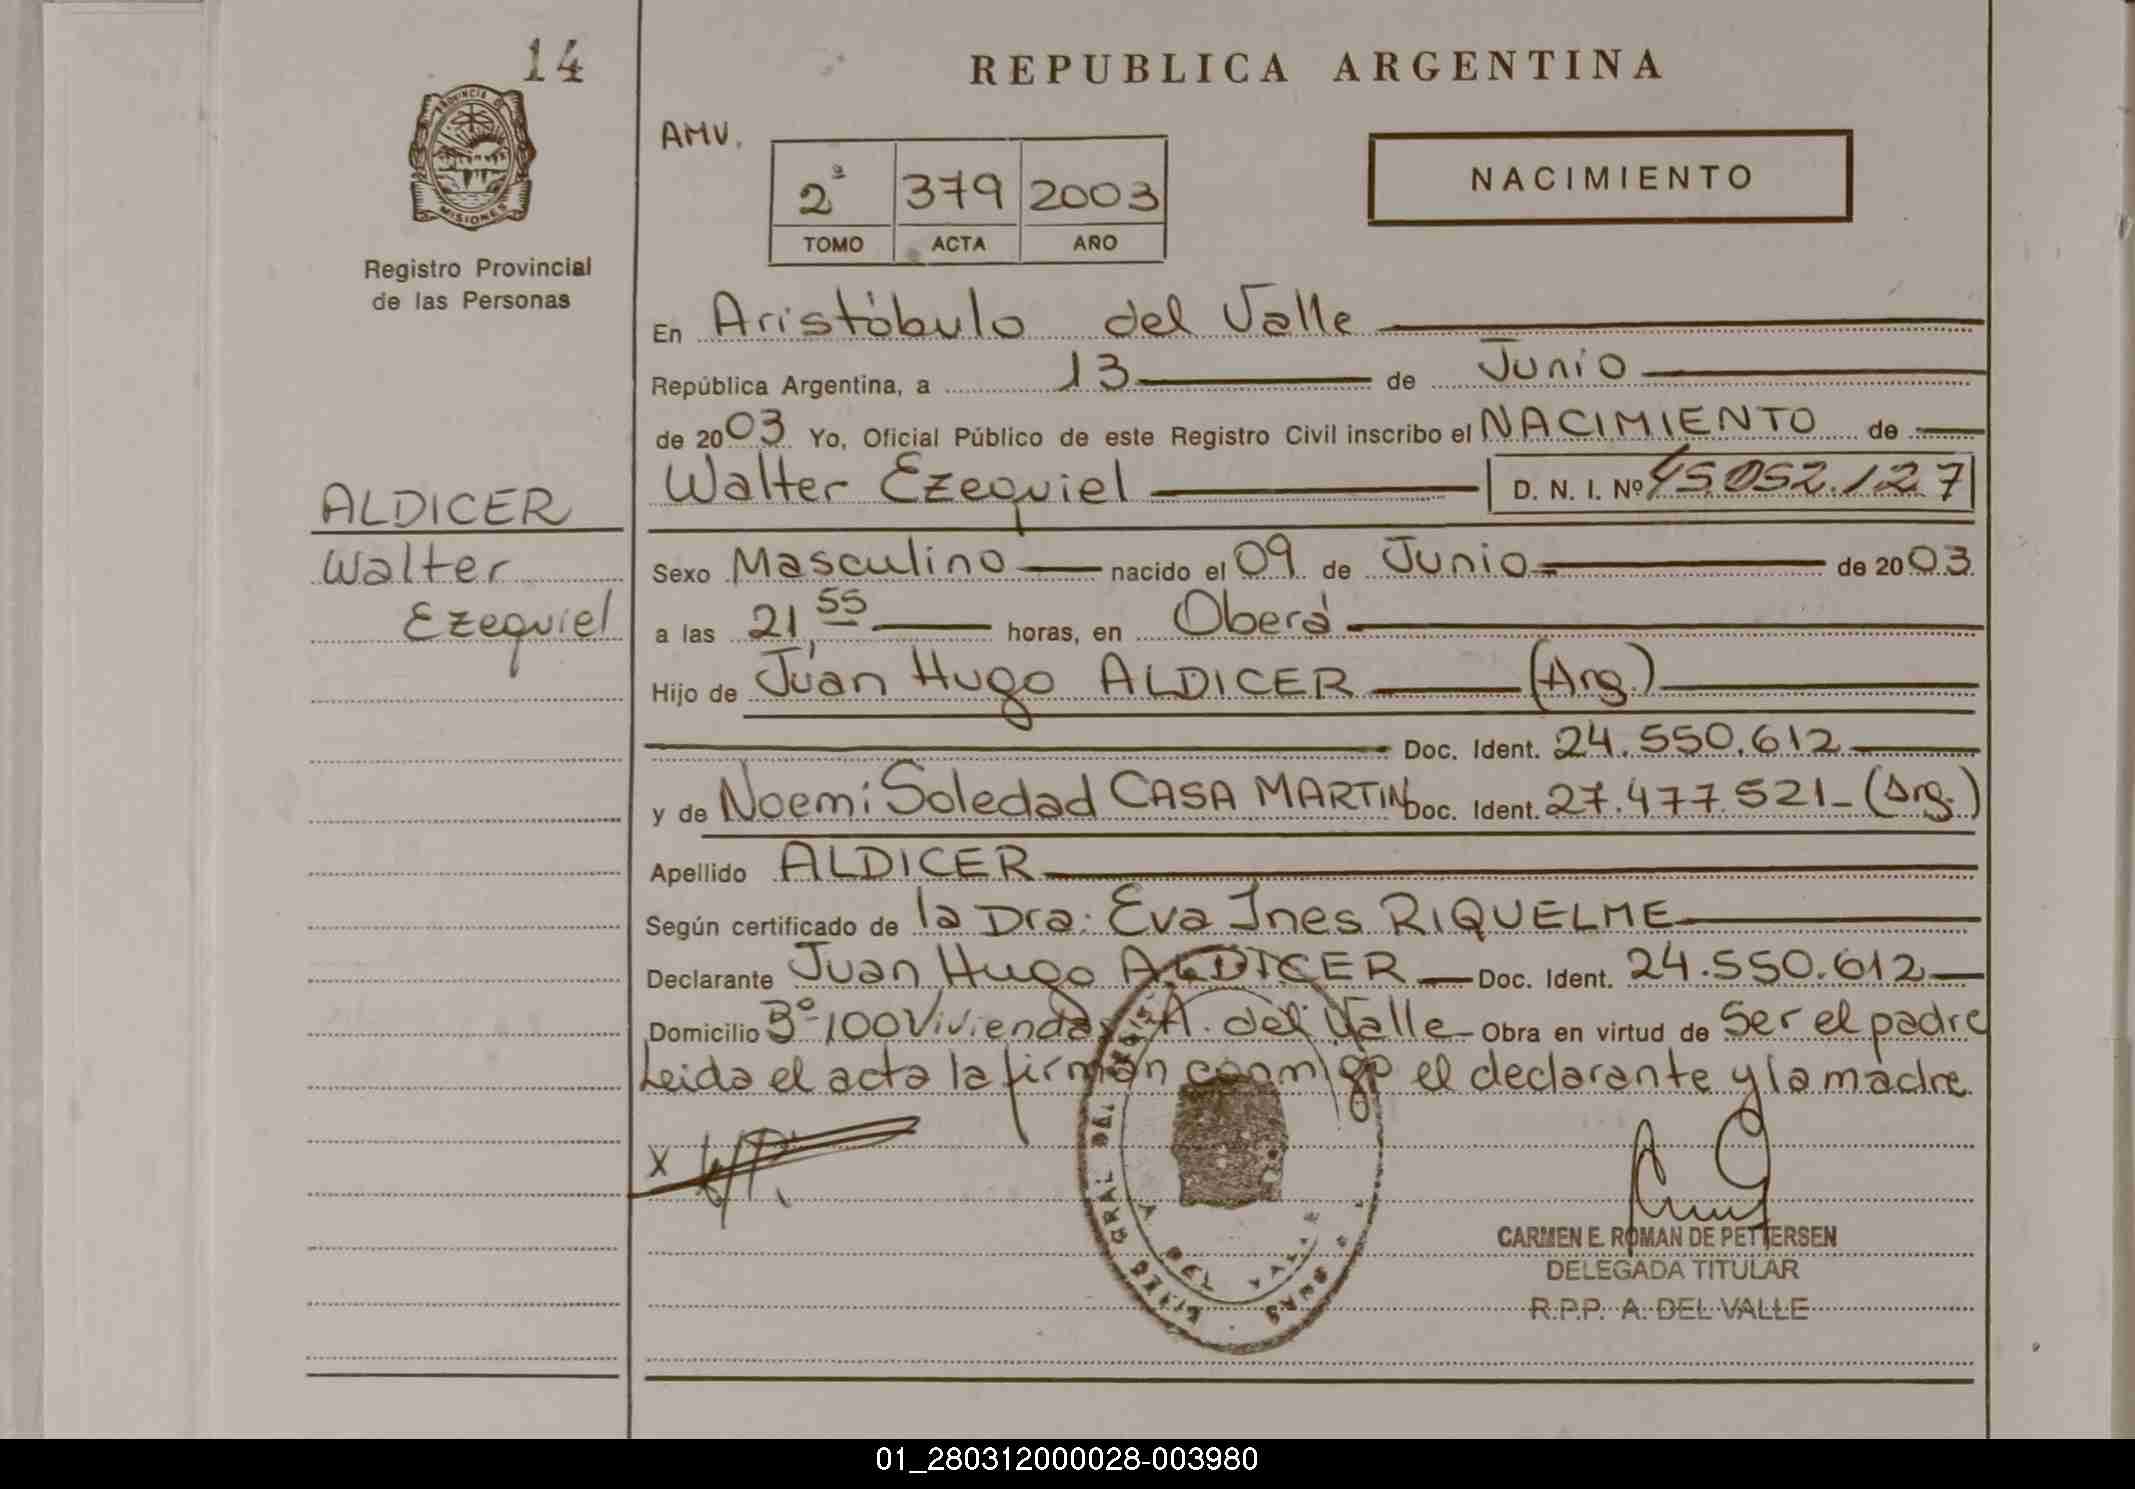 14
PROVINCIA DE
MISIONES
Registro Provincial
de las Personas
ALDICER
Walter
Ezequiel
REPUBLICA ARGENTINA
AMV.
2ª 379 2003
TOMO ACTA AÑO
NACIMIENTO
En Aristóbulo del Valle
República Argentina, a 13 de Junio
de 2003 Yo, Oficial Público de este Registro Civil inscribo el NACIMIENTO de
Walter Ezequiel D. N. I. Nº 45.052.127
Sexo Masculino nacido el 09 de Junio de 2003
a las 21,55 horas, en Oberá
Hijo de Juan Hugo ALDICER (Arg.)
Doc. Ident. 24.550.612
y de Noemi Soledad CASA MARTIN Doc. Ident. 27.477.521 (Arg.)
Apellido ALDICER
Según certificado de la Dra. Eva Ines RIQUELME
Declarante Juan Hugo ALDICER Doc. Ident. 24.550.612
Domicilio 3º 100 Viviendas A. del Valle Obra en virtud de Ser el padre
Leida el acta la firman conmigo el declarante y la madre
X
CARMEN E. ROMAN DE PETTERSEN
DELEGADA TITULAR
R.P.P. A. DEL VALLE
01_280312000028-003980